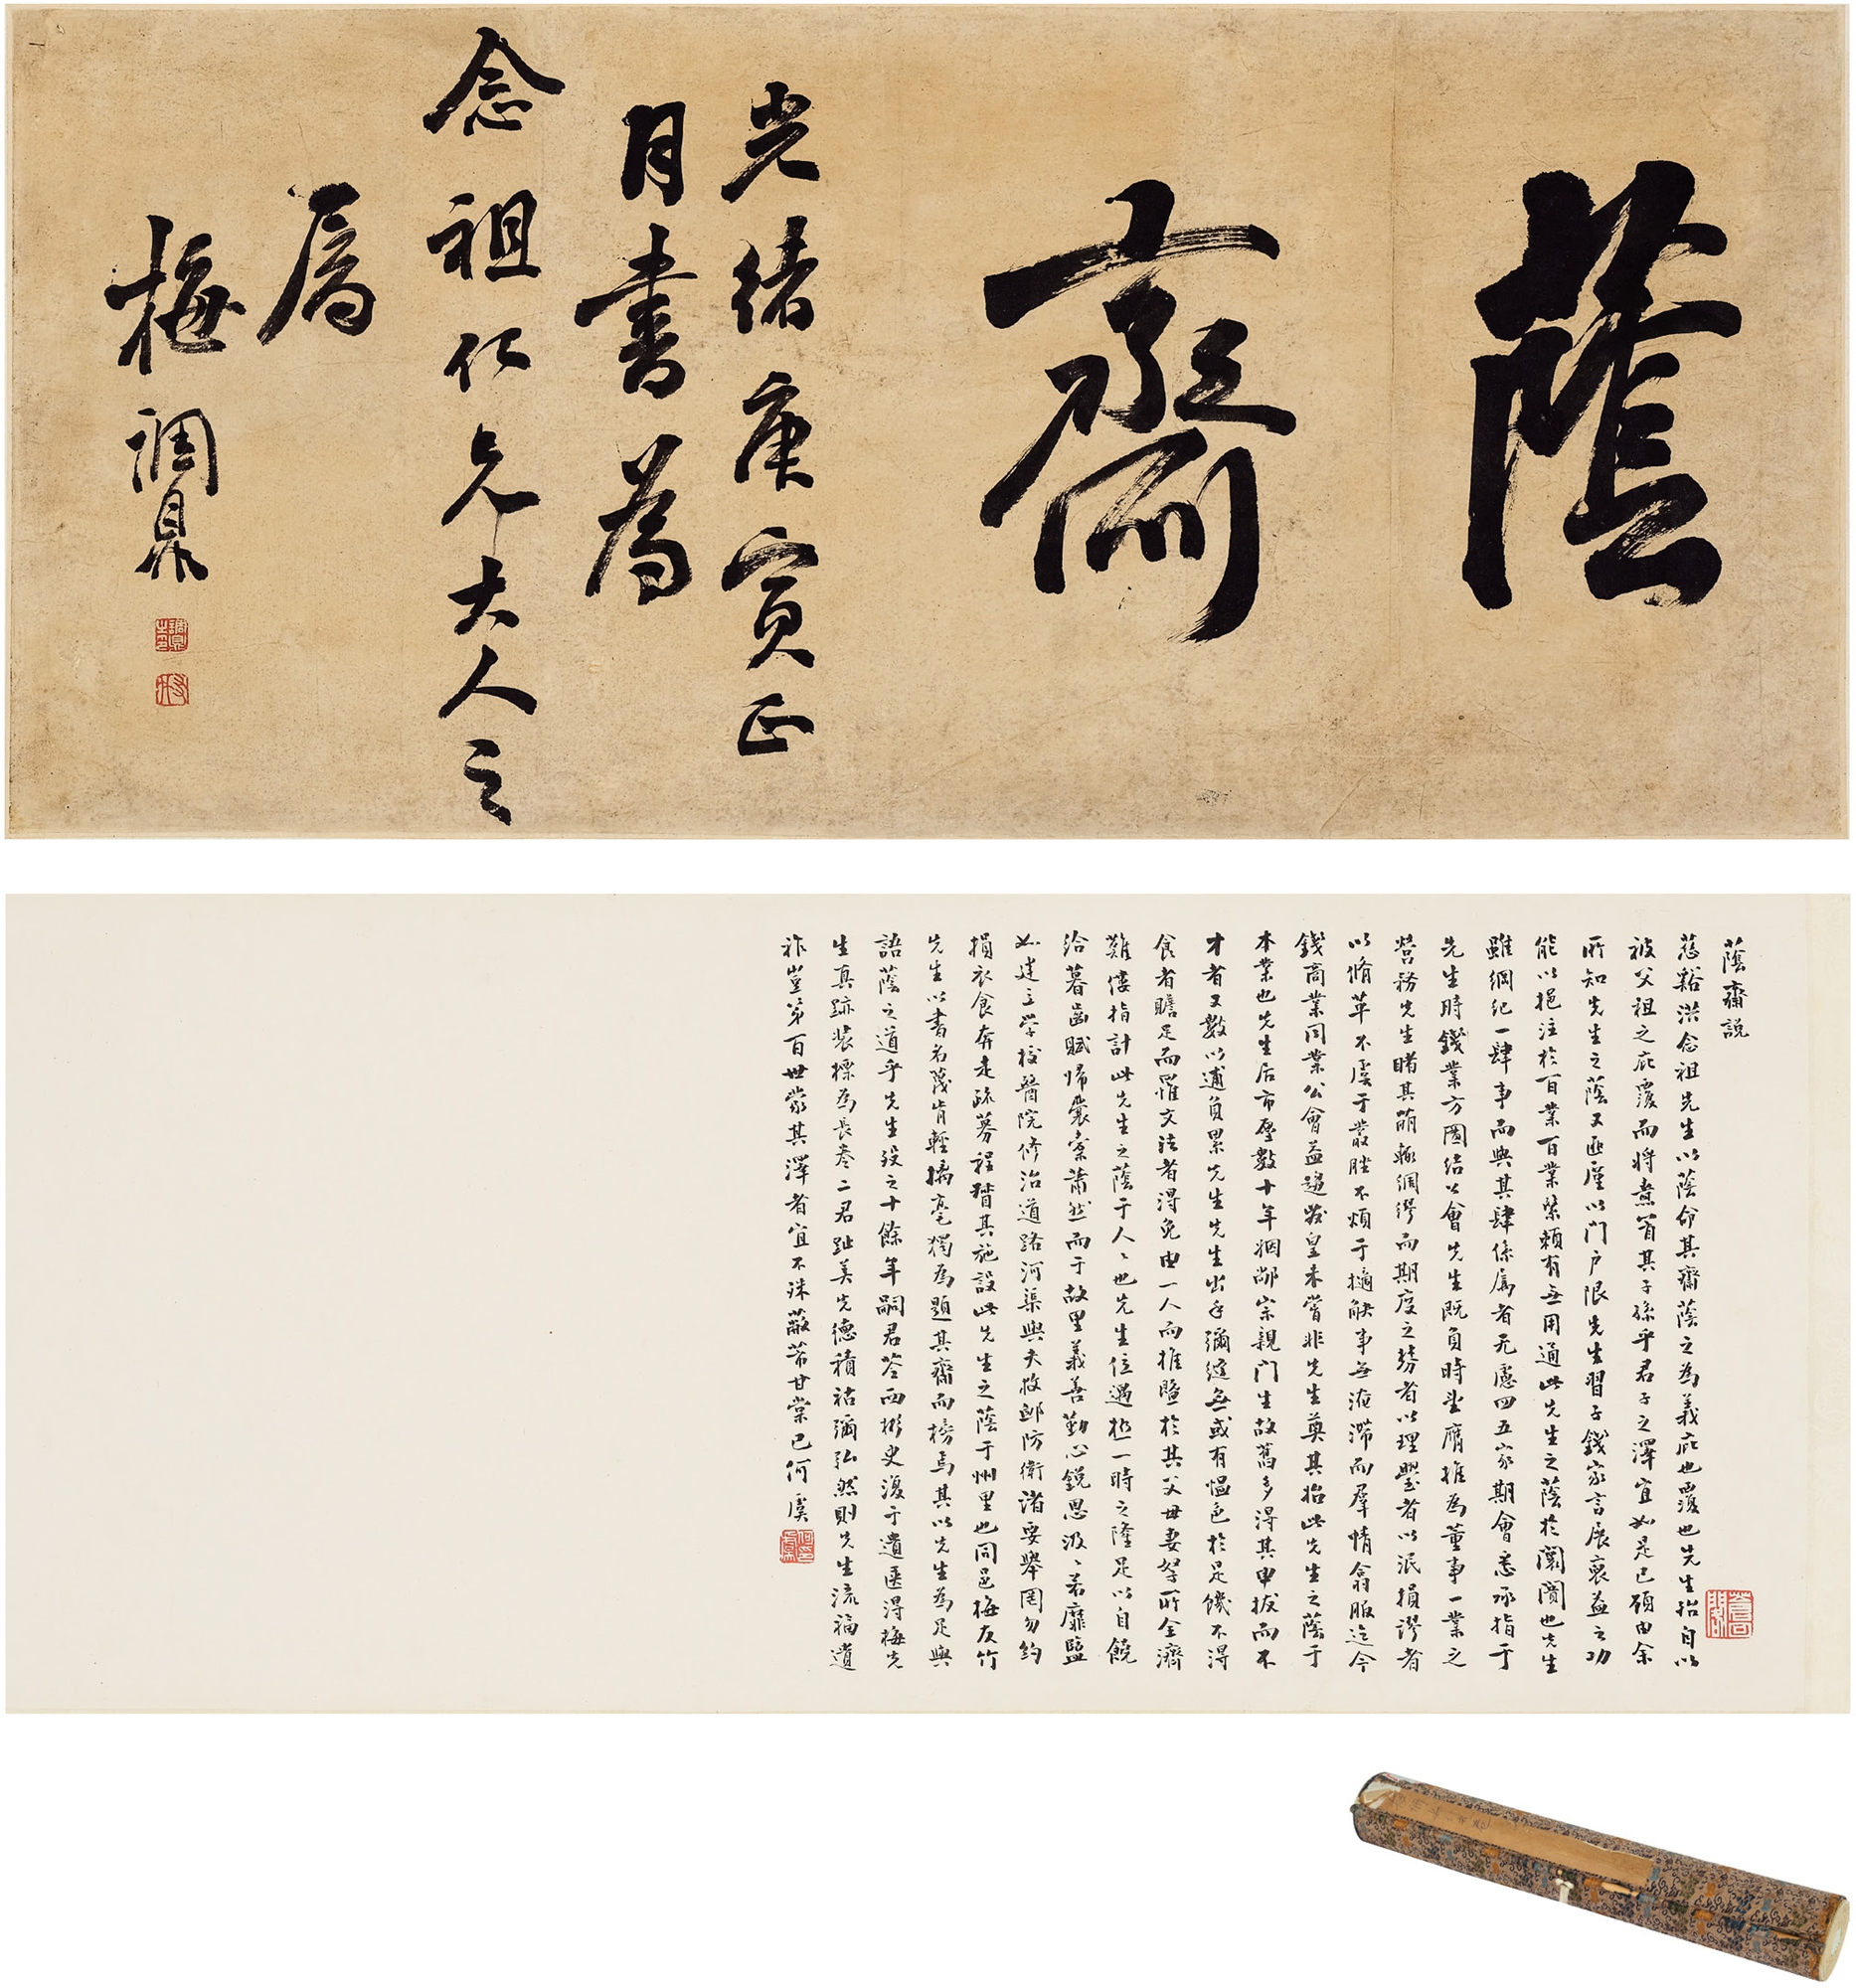 蔭齋
光緒庚寅正
月書為
念祖仁兄大人之
屬
梅調鼎
蔭齋說
慈谿洪念祖先生以蔭命其齋蔭之為義庇也覆也先生殆自以
被父祖之庇覆而將煮眘其子孫乎君子之澤宜如是已顧由余
所知先生之蔭又匪廑以門戶限先生習子錢家言展裒益之功
能以挹注於百業百業緊賴有無用通此先生之蔭於闤闠也先生
雖綱紀一肆事而與其肆係屬者无慮四五家期會悉承指于
先生時錢業方圖結公會先生既負時望膺推為董事一業之
營務先生睹其萌輒綢繆而期度之棼者以理舋者以泯損謬者
以脩革不虞于叢脞不煩于擿觖事無淹滯而羣情翕服迄今
錢商業同業公會益趨發皇未嘗非先生奠其招此先生之蔭于
本業也先生居市廛數十年姻鄰宗親門生故舊多得其申拔而不
才者又數以逋負累先生先生出手彌縫無或有慍色於是饑不得
食者贍足而罹文法者得免由一人而推暨於其父母妻孥所全濟
難僂指計此先生之蔭于人人也先生位遇極一時之隆足以自饒
洽暮齒賦歸囊橐蕭然而于故里義善勤心銳思汲汲若靡盬
如建立學校醫院修治道路河渠與夫救卹防衛諸要舉罔勿約
損衣食奔走疏募程督其施設此先生之蔭于州里也同邑梅友竹
先生以書名蔑肯輕搦毫獨為題其齋而榜焉其以先生為足與
語蔭之道乎先生歿之十餘年嗣君荃西彬史復于遺匧得梅先
生真跡裝標為長卷二君趾美先德積祜彌弘然則先生流福遺
祚豈第百世蒙其澤者宜不誅蔽芾甘棠已何虞